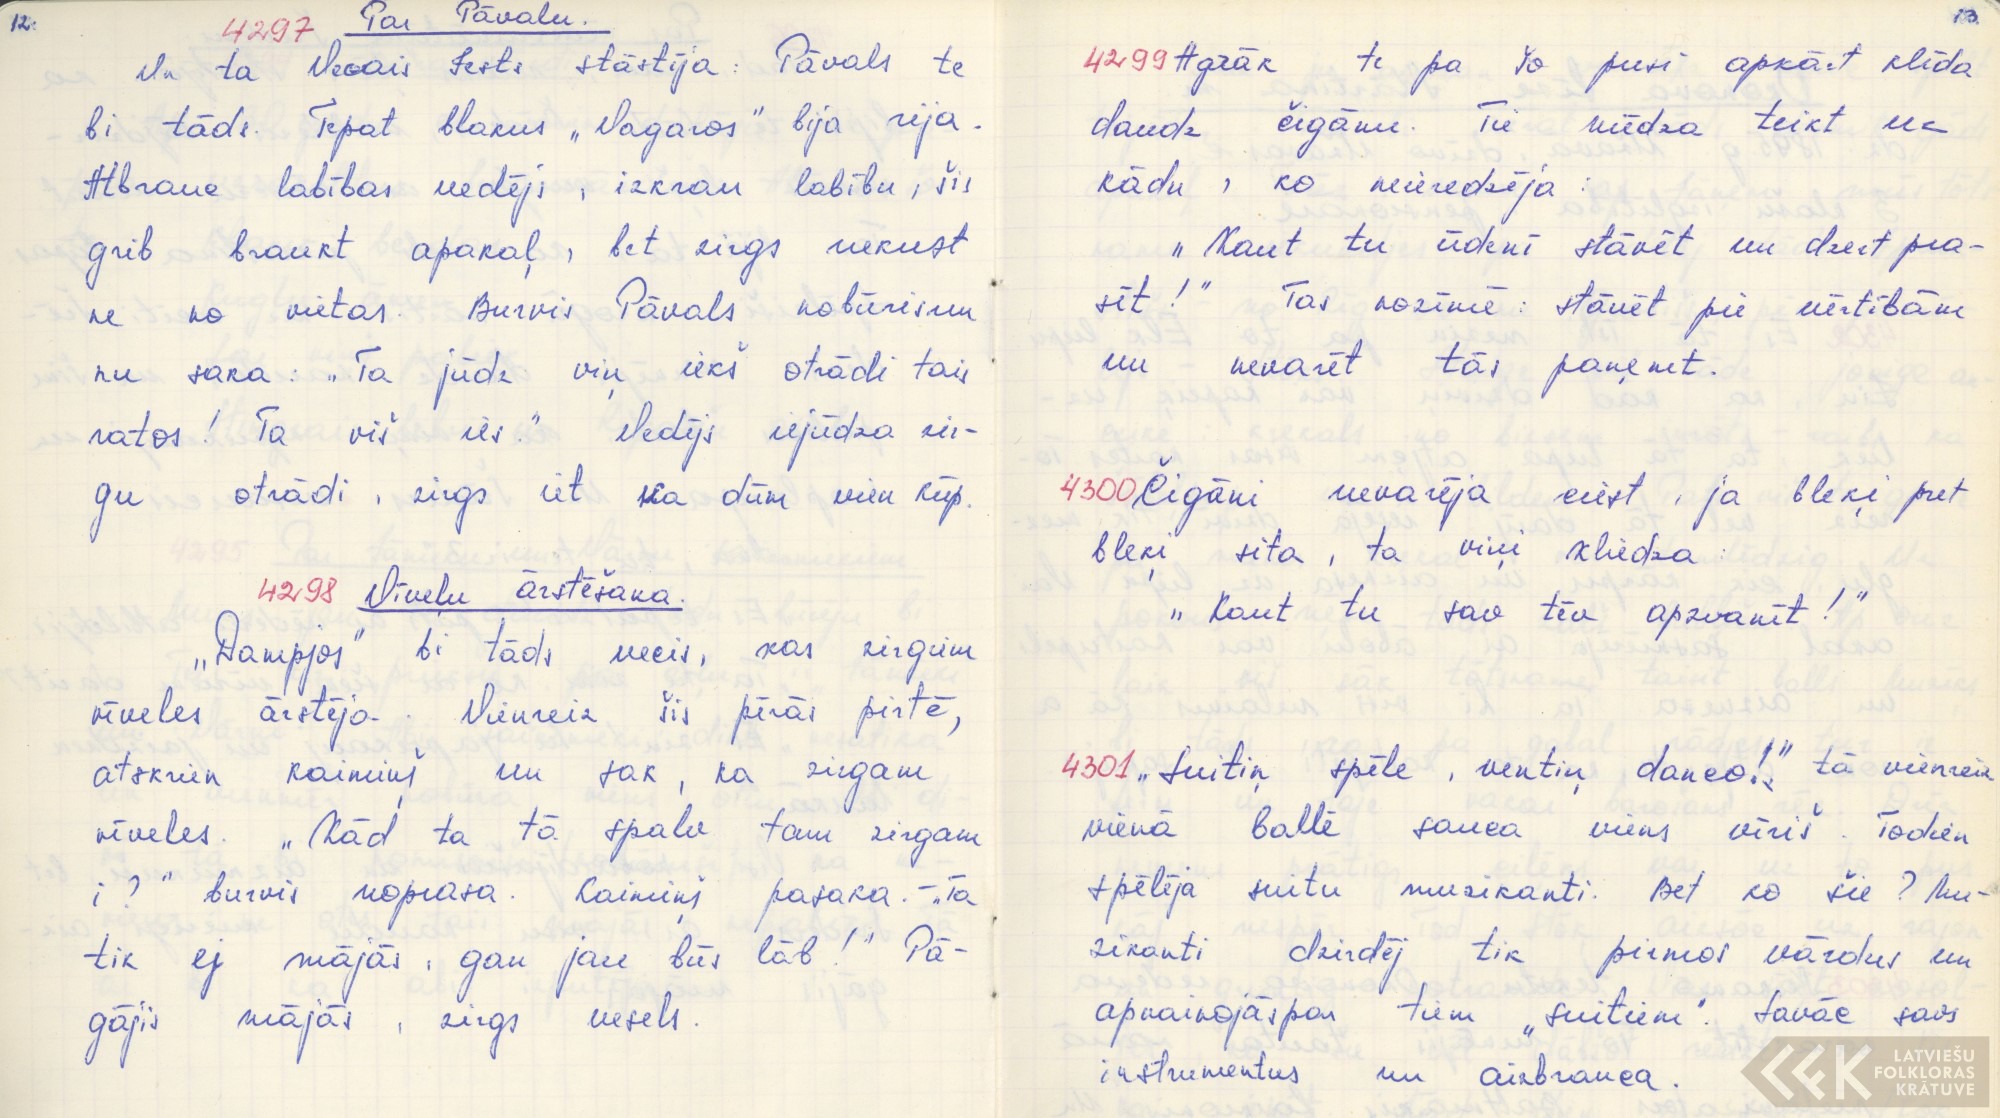 12.
4297 Par Pāvalu.
Un ta Vecais Ješts stāstīja: Pāvals te
bi tāds. Tepat blakus „Vagaros" bija rija.
Atbrauc labības vedējs, izkrau labību, šis
grib braukt apakaļ, bet zirgs nekust
ne no vietas. Burvis Pāvals nobūris un
nu saka: „Ta jūdz viņ iekš otrādi tais
ratos! Ta viš ies." Vedējs iejūdza zir-
gu otrādi, zirgs iet ka dūm vien kūp.
4298 Vīveļu ārstēšana.
„Dampjos" bi tāds vecis, kas zirgiem
vīveles ārstēja. Vienreiz šis pērās pirtē,
atskrien kaimiņš un sak, ka zirgam
vīveles. „Kād ta tā spalv tam zirgam
i?" burvis noprasa. Kaimiņš pasaka. – „Ta
tik ej mājās, gan jau būs lāb!" Pā-
gājis mājās, zirgs vesels.
13.
4299 Agrāk te pa šo pusi apkārt klīda
daudz čigānu. Tie mēdza teikt uz
kādu, ko neieredzēja:
„Kaut tu ūdenī stāvēt un dzert pra-
sīt!" Tas nozīmē: stāvēt pie vērtībām
un nevarēt tās paņemt.
4300 Čigāni nevarēja ciest, ja bleķi pret
bleķi sita, ta viņi kliedza:
„Kaut tu sav tēv apzvanīt!"
4301 „Suitiņ spēle, ventiņ danco!" tā vienreiz
vienā ballē sauca viens vīriš. Todien
spēlēja suitu muzikanti. Bet ko šie? Mu-
zikanti dzirdēj tik pirmos vārdus un
apvainojās par tiem „suitiem". Savāc savs
instrumentus un aizbrauca.
LATVIEŠU
FOLKLORAS
KRĀTUVE